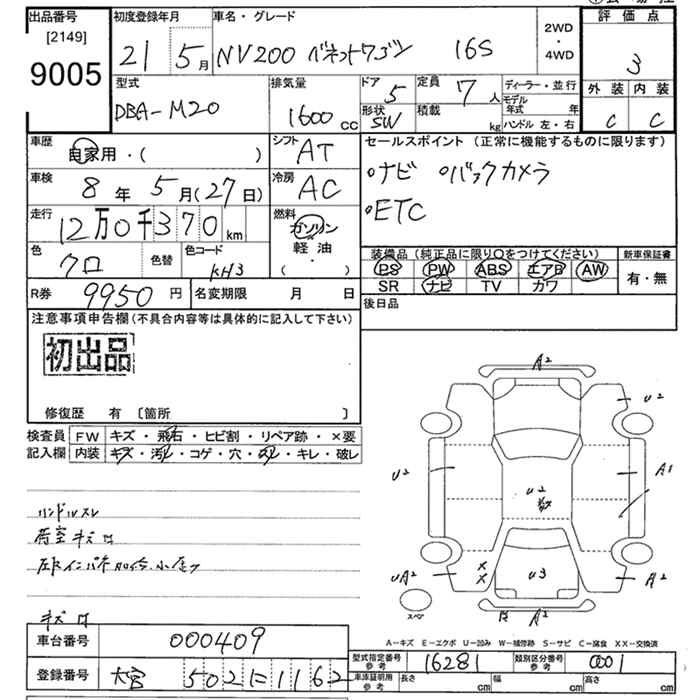 出品番号
[2149]
9005
初度登録年月
21 5月
車名・グレード
NV200 バネットワゴン 16S
2WD
・
4WD
評価点
3
外装 内装
C C
型式
DBA-M20
排気量
1600 cc
ドア
5
形状
SW
定員
7人
積載
kg
ディーラー・並行
モデル年式 年
ハンドル 左・右
車歴
自家用・( )
シフト
AT
車検
8年 5月(27日)
冷房
AC
走行
12万0千370 km
燃料
ガソリン
・
軽油
( )
色
クロ
色替
色コード
KH3
R券
9950円
名変期限 月 日
セールスポイント (正常に機能するものに限ります)
・ナビ ・バックカメラ
・ETC
装備品 (純正品に限り○をつけてください)
PS PW ABS エアB AW
SR ナビ TV カワ
新車保証書
有・無
後日品
注意事項申告欄(不具合内容等は具体的に記入して下さい)
初出品
修復歴 有 〔箇所 〕
検査員記入欄
FW キズ・飛石・ヒビ割・リペア跡・×要
内装 キズ・汚レ・コゲ・穴・スレ・キレ・破レ
ハンドルスレ
荷室キズ
A2
U2
U2
A1
U2
U3
UA2
A2
スペア
A2
A-キズ E-エクボ U-凹み W-補修跡 S-サビ C-腐食 XX-交換済
車台番号
000409
登録番号
大宮 502 に 1162
型式指定番号 参考
16281
類別区分番号 参考
0001
車庫証明用 参考
長さ cm 幅 cm 高さ cm